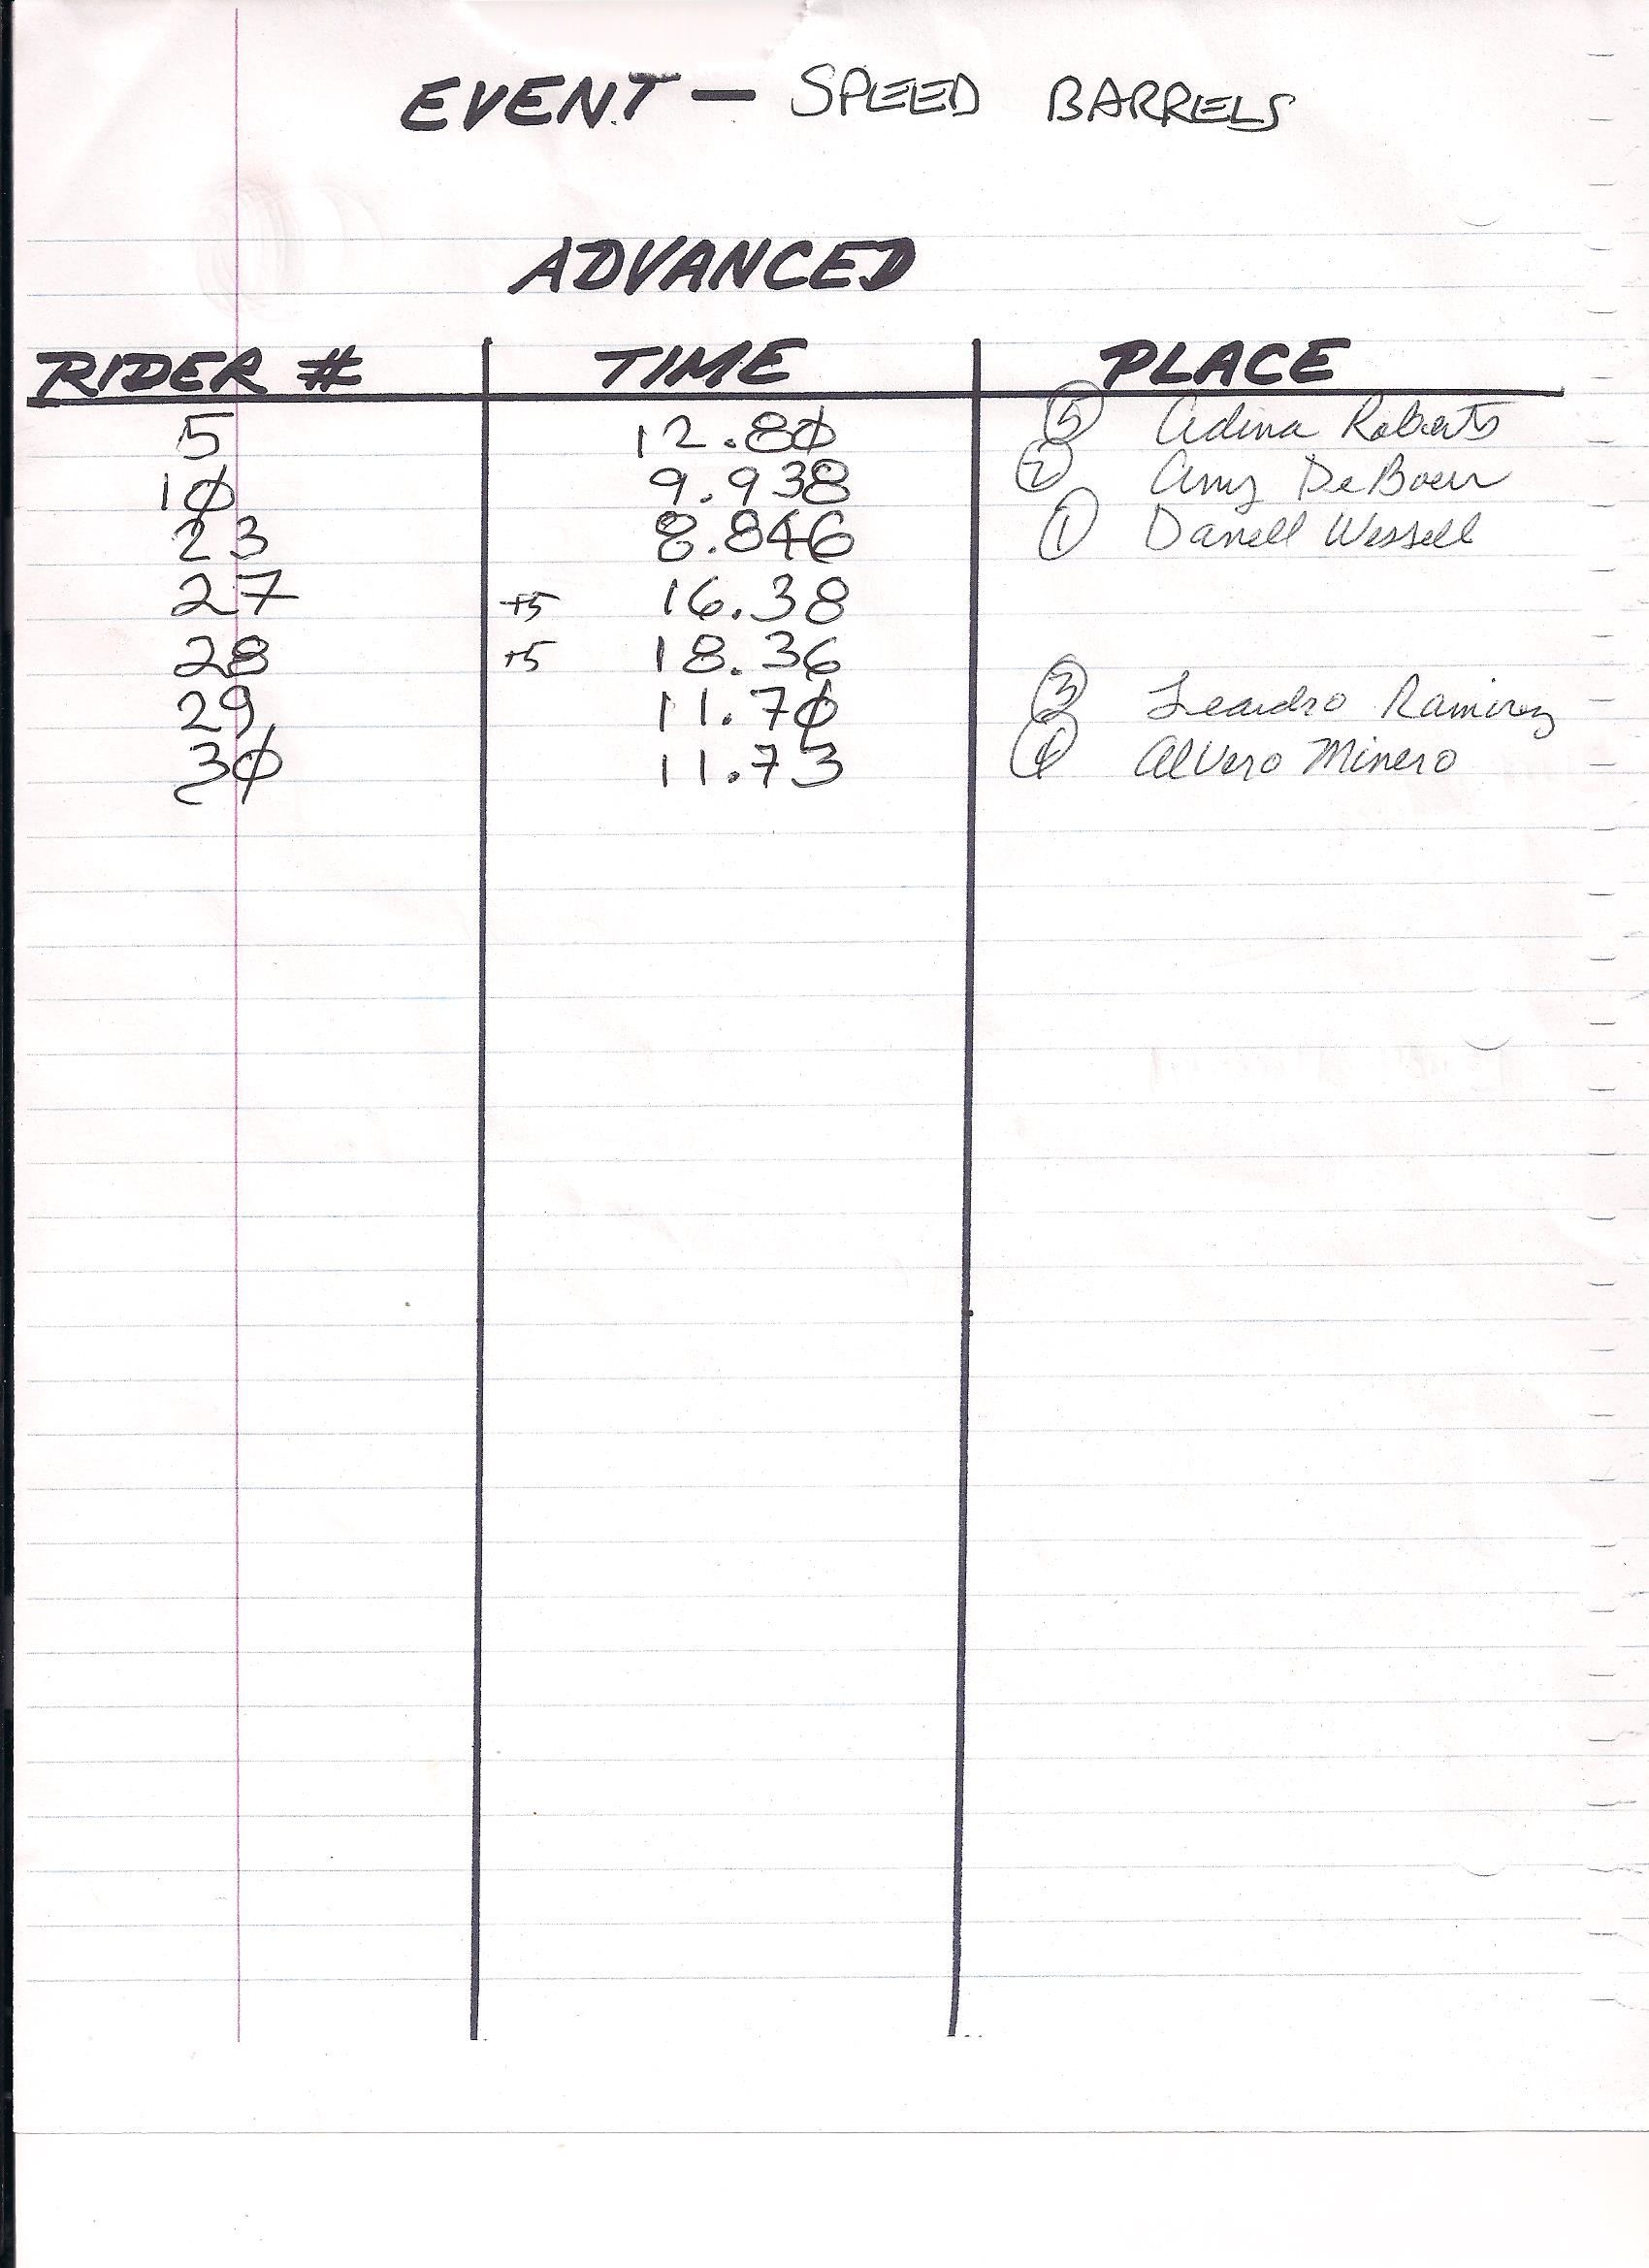 EVENT — SPEED BARRELS
ADVANCED
RIDER # TIME PLACE
5 12.80 5 Adina Roberts
10 9.938 2 Amy DeBoer
23 8.846 1 Darrell Wessell
27 +5 16.38
28 +5 18.36
29 11.70 3 Leandro Ramirez
30 11.73 4 Alvero Minero